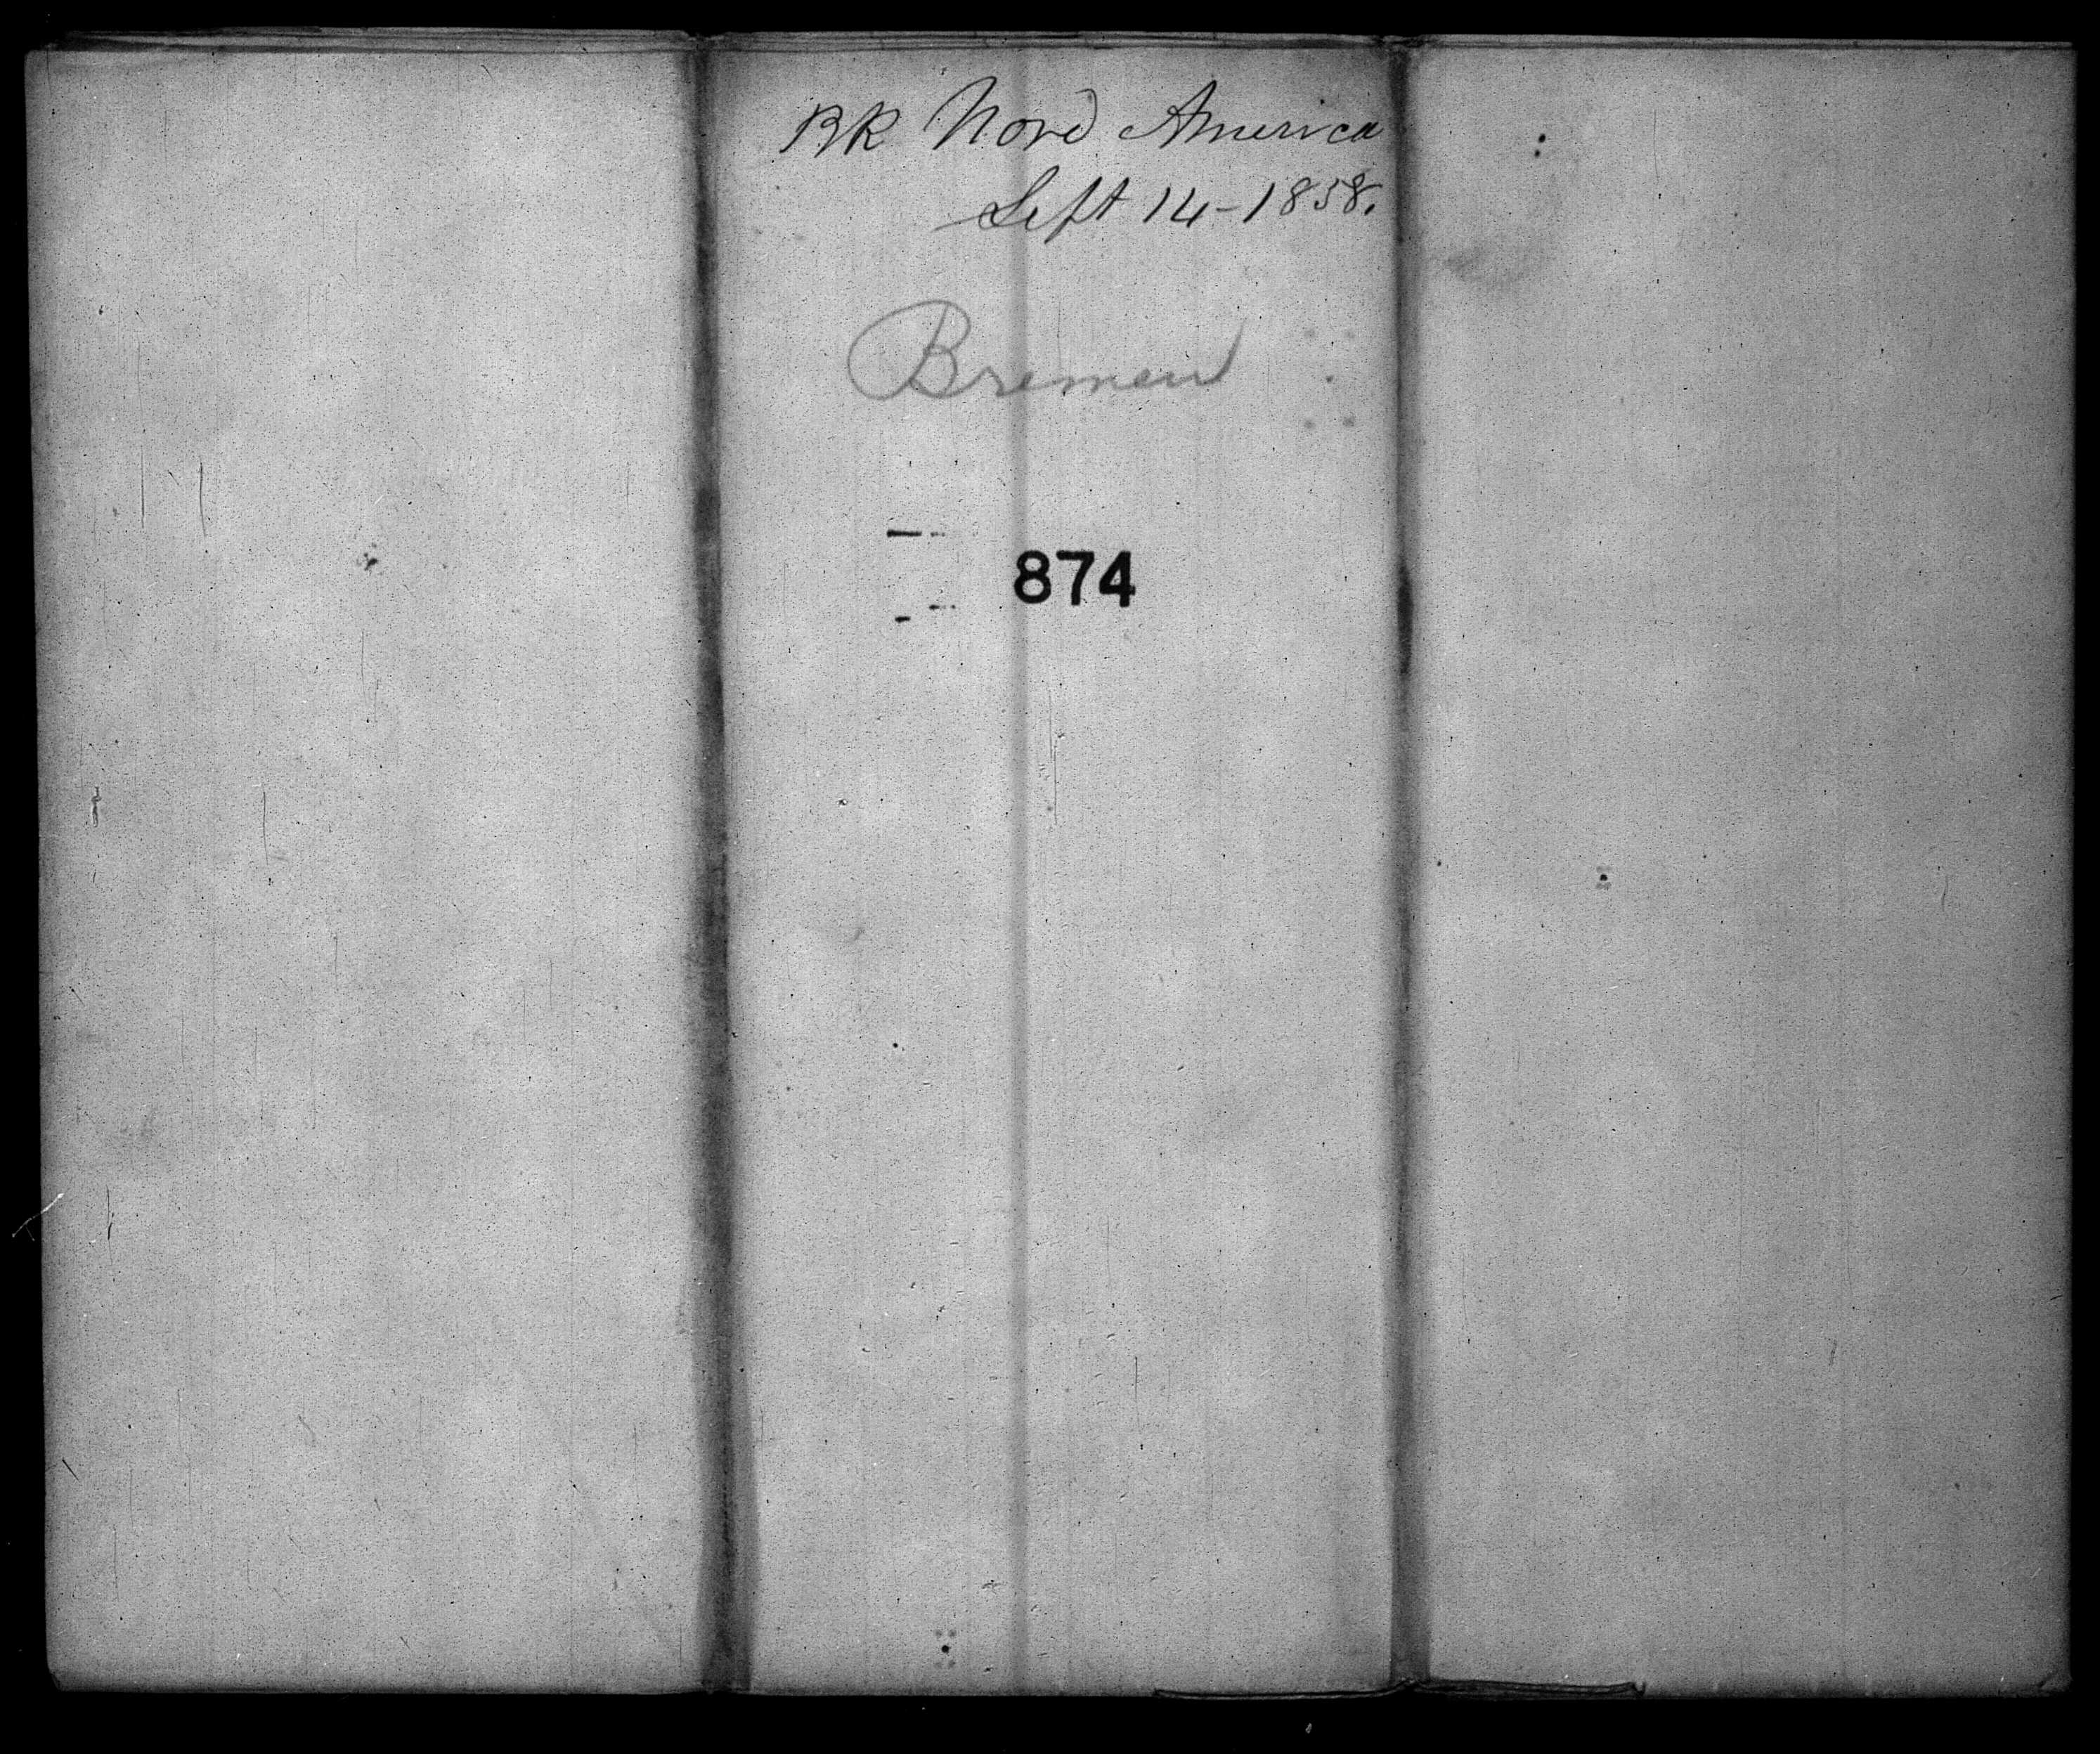 BK Nord America
Sept 14-1858.
Bremen
874